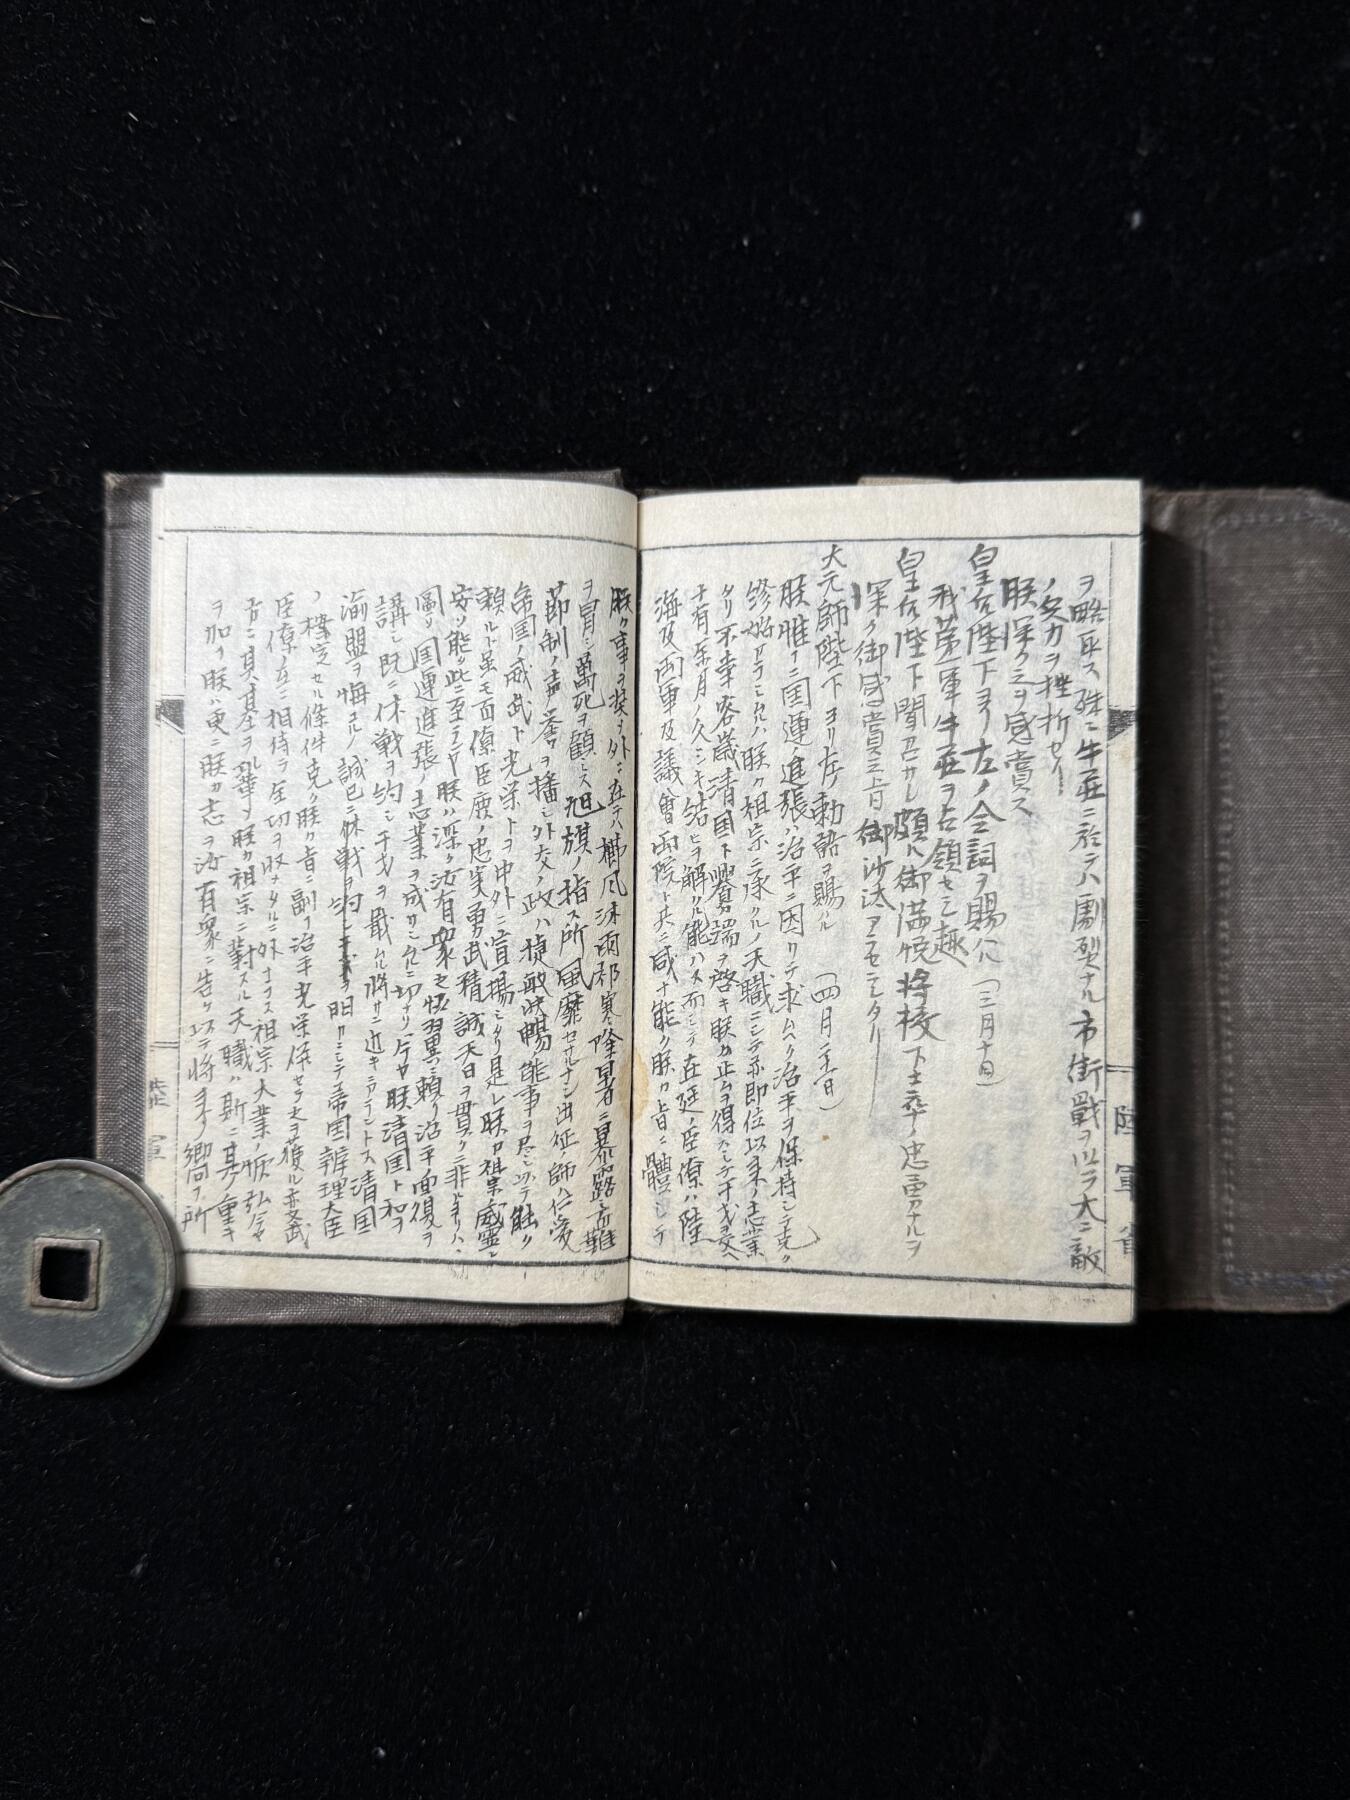 ヲ略取ス殊ニ牛荘ニ於テハ劇烈ナル市街戰ヲ以テ大ニ敵
ノ気力ヲ挫折セリ
朕深ク之ヲ感賞ス
皇后陛下ヨリ左ノ令詞ヲ賜ハル(三月十日)
我第一軍牛荘ヲ占領セシ趣
皇后陛下聞召サレ頗ル御満悦将校下士卒ノ忠勇ナルヲ
深ク御感賞ノ旨御沙汰アラセラレタリ
大元師陛下ヨリ左ノ勅語ヲ賜ル(四月二十一日)
朕惟フニ国運ノ進張ハ治平ニ因リテ求ムヘク治平ヲ保持シテ克ク
終始アラシムルハ朕カ祖宗ニ承クルノ天職ニシテ亦即位以来ノ志業
タリ不幸客歳清国ト釁端ヲ啓キ朕カ止ムヲ得スシテ干戈ヲ交ヘ
十有余月ノ久シキ結ヒテ解クル能ハス而シテ在廷ノ臣僚ハ陸
海及両軍及議會両院ト共ニ咸ナ能ク朕カ旨ニ體シテ
朕カ事ヲ奨メ外ニ在テハ櫛風沐雨祁寒隆暑ニ暴露シ苦難
ヲ冒シ萬死ヲ顧ミス旭旗ノ指ス所風靡セサルナシ出征ノ師ハ仁愛
節制ノ声誉ヲ播シ外交ノ政ハ捷敏快暢ノ能事ヲ尽シ以テ能ク
帝国ノ威武ト光栄トヲ中外ニ宣揚シタリ是レ朕カ祖宗ノ威霊ニ
頼ルト虽モ百僚臣庶ノ忠実勇武精誠天日ヲ貫クニ非ルヨリハ
安ソ能ク此ニ至ランヤ朕ハ深ク汝有衆ノ協翼ニ頼リ治平ノ回復ヲ
図リ国運進張ノ志業ヲ成サムルニ切ナリ今ヤ朕清国ト和ヲ
講シ既ニ休戦ヲ約シ干戈ヲ戢ムル将サニ近キニアラントス清国
渝盟ヲ悔ユルノ誠已ニ明カニシテ帝国辨理大臣
ノ檡定セル條件克ク朕カ旨ニ副フ治平光栄併セテ之ヲ獲ル亦文武
臣僚ノ互ニ相待テ全功ヲ収メタルニ外ナラス祖宗大業ノ恢弘今ヤ
方ニ其基ヲ肇ヲ朕カ祖宗ニ對スル天職ハ斯ニ其ノ重キ
ヲ加フ朕ハ更ニ朕カ志ヲ汝有衆ニ告ケ以テ将来ノ嚮フ所
陸軍省
陸軍